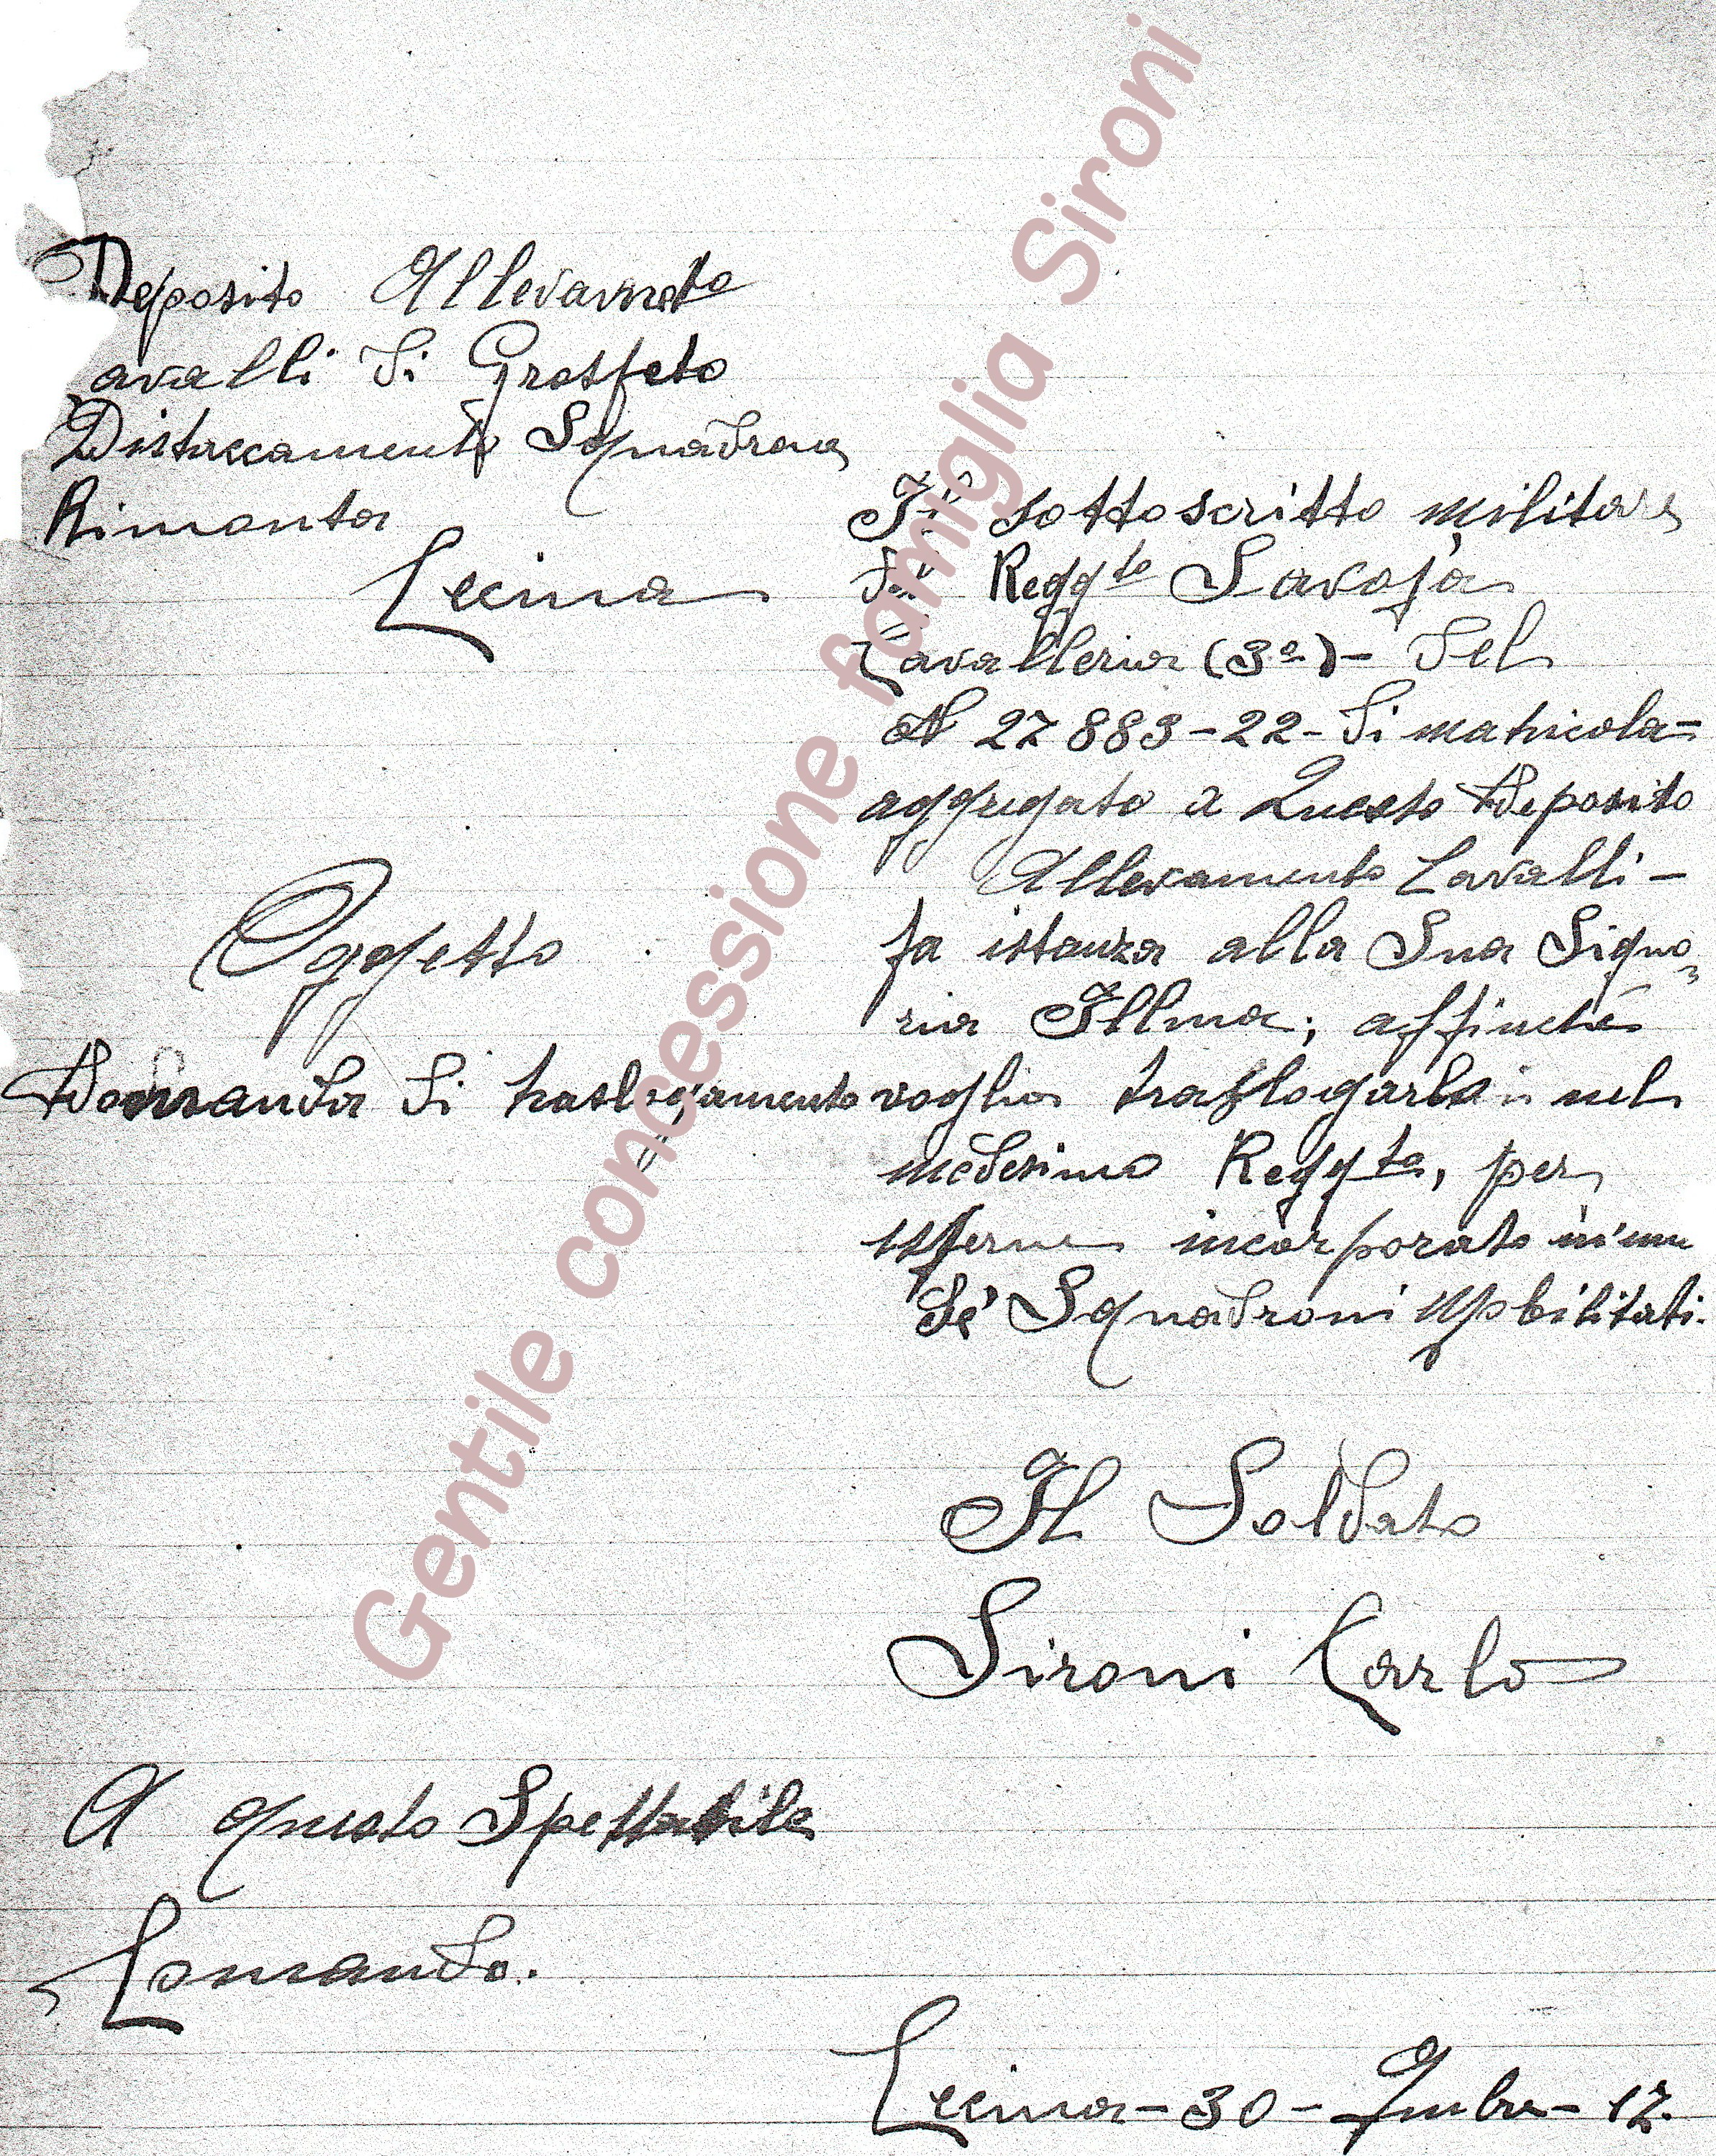 Deposito Allevamento
Cavalli di Grosseto
Distaccamento Squadrone
Rimonta
Cecina
Il sottoscritto militare
del Regg.to Savoja
Cavalleria (3º)- del
N 27883-22- di matricola=
aggregato a Questo Deposito
Allevamento Cavalli-
fa istanza alla Sua Signo=
ria Illma; affinché
Oggetto
Domanda di traslogamento
voglia traslogarlo nel
medesimo Regg.to, per
essere incorporato in uno
de' Squadroni Mobilitati.
Il Soldato
Sironi Carlo
A questo Spettabile
Comando.
Cecina-30-9mbre-17.
Gentile concessione famiglia Sironi